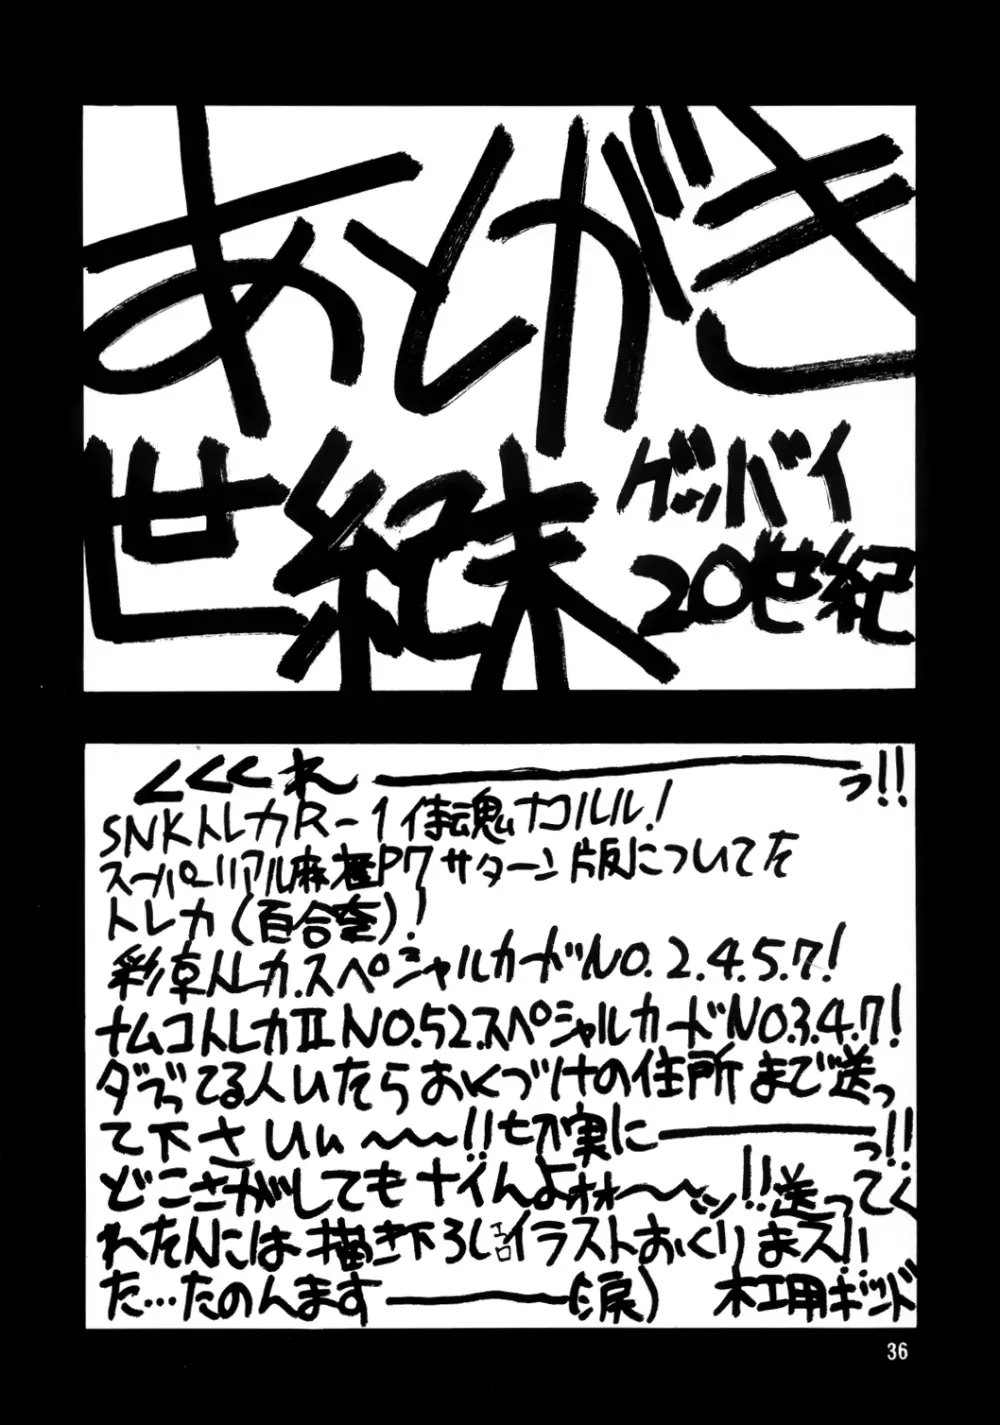 あとがき
世紀末
グッバイ
20世紀
くくくれ――――――っ!!
SNKトレカR-1侍魂ナコルル!
スーパーリアル麻雀P7サターン版についてた
トレカ(百合奈)!
彩京トレカ.スペシャルカードNO.2.4.5.7!
ナムコトレカⅡNO.52.スペシャルカードNO3.4.7!
ダブってる人いたらおくづけの住所まで送っ
て下さいぃ〜〜〜!!切実に――――っ!!
どこさがしてもナイんよォォ〜〜ッ!!送ってく
れた人には描き下ろしエロイラストおくりまス!!
た…たのんます――――(涙) 木工用ボンド
36